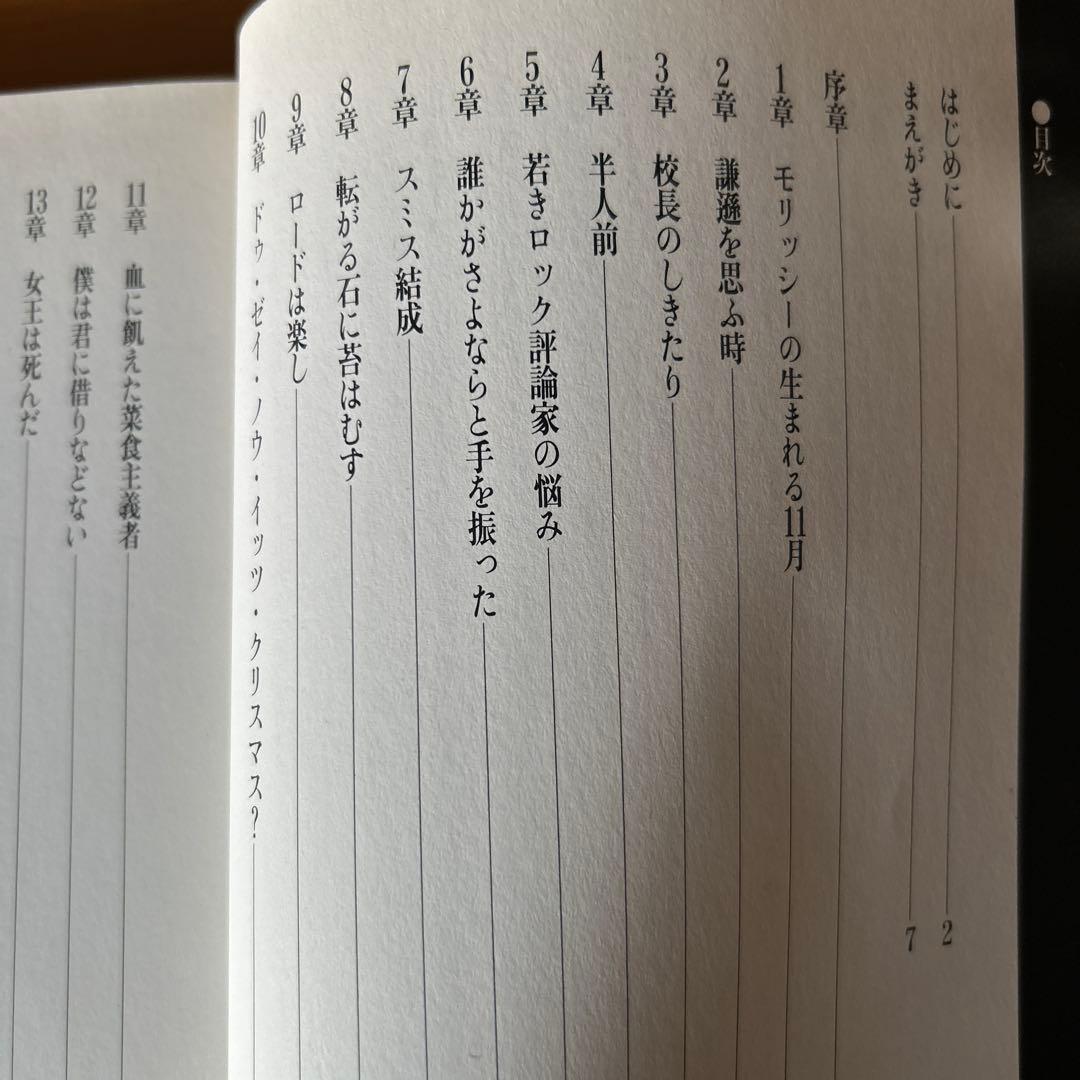 ●目次
はじめに 2
まえがき 7
序章
1章 モリッシーの生まれる11月
2章 謙遜を思ふ時
3章 校長のしきたり
4章 半人前
5章 若きロック評論家の悩み
6章 誰かがさよならと手を振った
7章 スミス結成
8章 転がる石に苔はむす
9章 ロードは楽し
10章 ドゥ・ゼイ・ノウ・イッツ・クリスマス?
11章 血に飢えた菜食主義者
12章 僕は君に借りなどない
13章 女王は死んだ